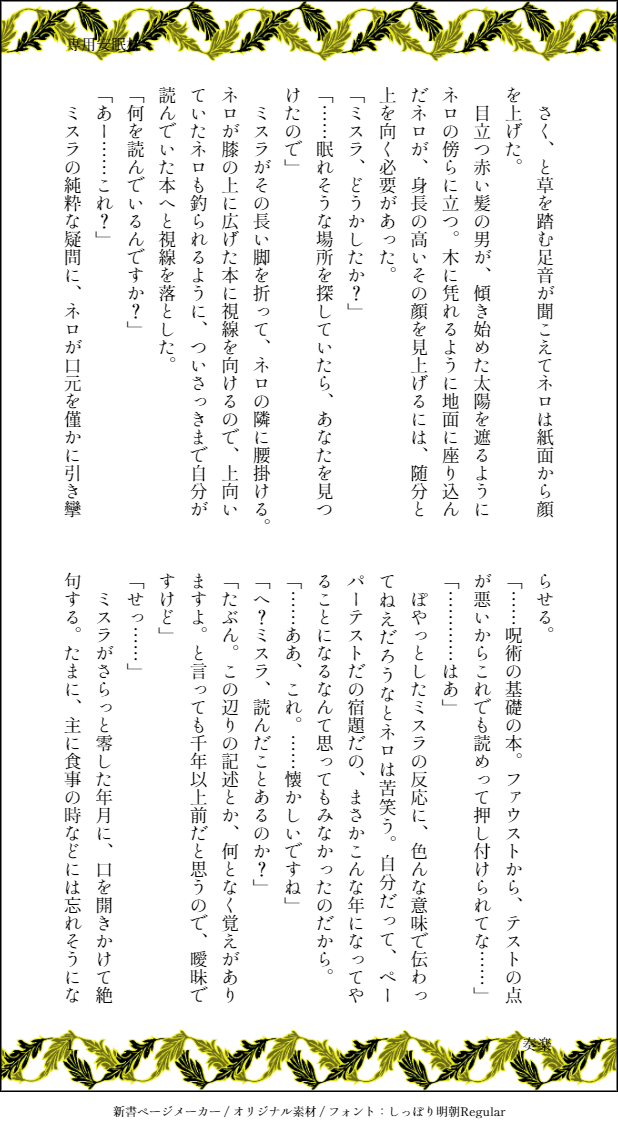 専用安眠
さく、と草を踏む足音が聞こえてネロは紙面から顔
を上げた。
目立つ赤い髪の男が、傾き始めた太陽を遮るように
ネロの傍らに立つ。木に凭れるように地面に座り込ん
だネロが、身長の高いその顔を見上げるには、随分と
上を向く必要があった。
「ミスラ、どうかしたか？」
「……眠れそうな場所を探していたら、あなたを見つ
けたので」
ミスラがその長い脚を折って、ネロの隣に腰掛ける。
ネロが膝の上に広げた本に視線を向けるので、上向い
ていたネロも釣られるように、ついさっきまで自分が
読んでいた本へと視線を落とした。
「何を読んでいるんですか？」
「あー……これ？」
ミスラの純粋な疑問に、ネロが口元を僅かに引き攣
らせる。
「……呪術の基礎の本。ファウストから、テストの点
が悪いからこれでも読めって押し付けられてな……」
「…………はあ」
ぽやっとしたミスラの反応に、色んな意味で伝わっ
てねえだろうなとネロは苦笑う。自分だって、ペー
パーテストだの宿題だの、まさかこんな年になってや
ることになるなんて思ってもみなかったのだから。
「……ああ、これ。……懐かしいですね」
「へ？ミスラ、読んだことあるのか？」
「たぶん。この辺りの記述とか、何となく覚えがあり
ますよ。と言っても千年以上前だと思うので、曖昧で
すけど」
「せっ……」
ミスラがさらっと零した年月に、口を開きかけて絶
句する。たまに、主に食事の時などには忘れそうにな
1
奏楽
新書ページメーカー / オリジナル素材 / フォント：しっぽり明朝Regular